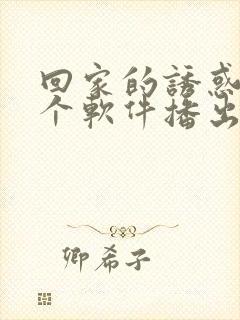 回家的誘惑
个軟件播出
卿希子